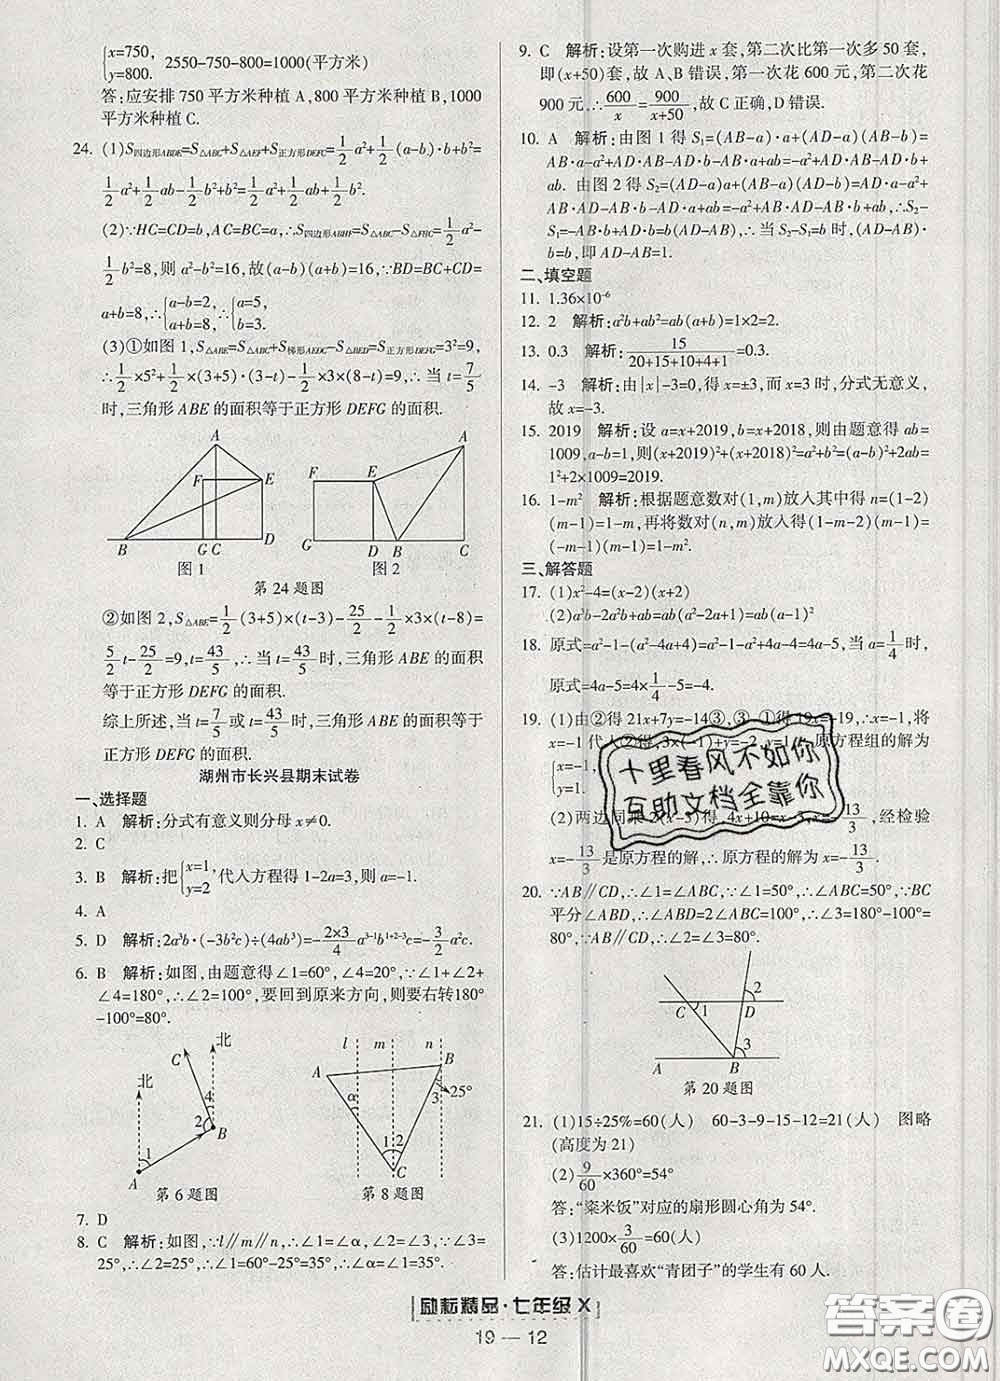 {x=750, y=800. 2550-750-800=1000(平方米)
答:应安排750平方米种植A,800平方米种植B,1000
平方米种植C.
24. (1)S四边形ABDE=S△ABC+S△AEF+S正方形DEFC=1/2a²+1/2(a-b)·b+b²=
1/2a²+1/2ab-1/2b²+b²=1/2a²+1/2ab+1/2b².
(2)∵HC=CD=b,AC=BC=a,∴S四边形ABHF=S△ABC-S△FHC=1/2a²-
1/2b²=8,则a²-b²=16,故(a-b)(a+b)=16,∵BD=BC+CD=
a+b=8,∴{a-b=2, a+b=8,∴{a=5, b=3.
(3)①如图1,S△ABE=S△ABC+S梯形AEDC-S△BED=S正方形DEFG=3²=9,
∴1/2×5²+1/2×(3+5)·(3-t)-1/2×3×(8-t)=9,∴当t=7/5
时,三角形ABE的面积等于正方形DEFG的面积.
A
F E
B G C D
图1
A
F E
G D B C
图2
第24题图
②如图2,S△ABE=1/2(3+5)×(t-3)-25/2-1/2×3×(t-8)=
5/2t-25/2=9,t=43/5,∴当t=43/5时,三角形ABE的面积
等于正方形DEFG的面积.
综上所述,当t=7/5或t=43/5时,三角形ABE的面积等于
正方形DEFG的面积.
湖州市长兴县期末试卷
一、选择题
1. A 解析:分式有意义则分母x≠0.
2. C
3. B 解析:把{x=1, y=2'代入方程得1-2a=3,则a=-1.
4. A
5. D 解析:2a³b·(-3b²c)÷(4ab³)=-2×3/4a³⁻¹b¹⁺²⁻³c=-3/2a²c.
6. B 解析:如图,由题意得∠1=60°,∠4=20°,∵∠1+∠2+
∠4=180°,∴∠2=100°,要回到原来方向,则要右转180°
-100°=80°.
北
C
北
4
2
B
1
A
第6题图
l m n
A B
α 3 25°
1 2
C
第8题图
7. D
8. C 解析:如图,∵l∥m∥n,∴∠1=∠α,∠2=∠3,∵∠3=
25°,∴∠2=25°,∴∠1=60°-25°=35°,∴∠α=∠1=35°.
9. C 解析:设第一次购进x套,第二次比第一次多50套,
即(x+50)套,故A、B错误,第一次花600元,第二次花
900元,∴600/x=900/x+50,故C正确,D错误.
10. A 解析:由图1得S₁=(AB-a)·a+(AD-a)(AB-b)=
AB·a-a²+AD·AB-AD·b-AB·a+ab=-a²+AD·AB-AD·b+
ab. 由图2得S₂=(AD-a)a+(AB-a)(AD-b)=AD·a-a²+
AB·AD-AB·b-AD·a+ab=-a²+AB·AD-AB·b+ab,∴S₂-
S₁=-AB·b+AD·b=(AD-AB)·b,∴当S₂-S₁=b时,(AD-
AB)·b=b,即AD-AB=1.
二、填空题
11. 1.36×10⁻⁶
12. 2 解析:a²b+ab²=ab(a+b)=1×2=2.
13. 0.3 解析:15/20+15+10+4+1=0.3.
14. -3 解析:由|x|-3=0,得x=±3,而x=3时,分式无意义,
故x=-3.
15. 2019 解析:设a=x+2019,b=x+2018,则由题意得ab=
1009,a-b=1,则(x+2019)²+(x+2018)²=a²+b²=(a-b)²+2ab=
1²+2×1009=2019.
16. 1-m² 解析:根据题意数对(1,m)放入其中得n=(1-2)
(m-1)=1-m,再将数对(n,m)放入得(1-m-2)(m-1)=
(-m-1)(m-1)=1-m².
三、解答题
17. (1)x²-4=(x-2)(x+2)
(2)a³b-2a²b+ab=ab(a²-2a+1)=ab(a-1)²
18. 原式=a²-1-(a²-4a+4)=a²-1-a²+4a-4=4a-5,当a=1/4时,
原式=4a-5=4×1/4-5=-4.
19. (1)由②得21x+7y=-14③,③-①得19x=-19,∴x=-1,将
x=-1代入②得,3×(-1)+y=-2,y=1,∴原方程组的解为
{x=-1, y=1.
(2)两边同乘2(x-5)得,4x+10=x-3,x=-13/3,经检验
x=-13/3是原方程的解,∴原方程的解为x=-13/3.
20. ∵AB∥CD,∴∠1=∠ABC,∵∠1=50°,∴∠ABC=50°,∵BC
平分∠ABD,∴∠ABD=2∠ABC=100°,∴∠3=180°-100°=
80°,∵AB∥CD,∴∠2=∠3=80°.
2
C 1 D
3
A B
第20题图
21. (1)15÷25%=60(人) 60-3-9-15-12=21(人) 图略
(高度为21)
(2)9/60×360°=54°
答:“粢米饭”对应的扇形圆心角为54°.
(3)1200×3/60=60(人)
答:估计最喜欢“青团子”的学生有60人.
十里春风不如你
互助文档全靠你
励耘精品·七年级X
19 — 12
答案圈
MXQE.COM